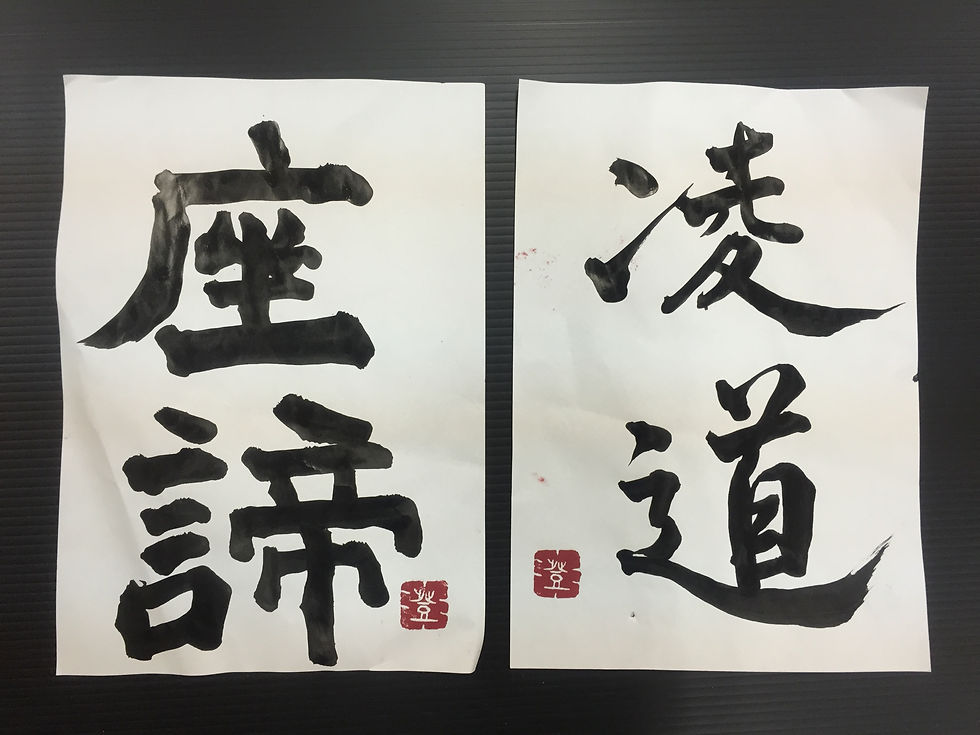 凌道
登
座諦
登